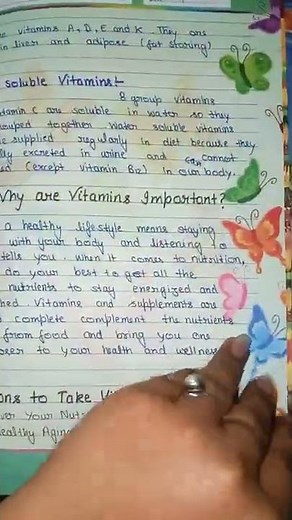 vitamins A, D, E and K. They are
in liver and adipose (fat storing)
soluble Vitamins:-
B group vitamins
vitamin C are soluble in water so they
grouped together. Water soluble vitamins
supplied regularly in diet because they
excreted in urine and can cannot
(except vitamin B12) in our body.
Why are Vitamins Important?
a healthy lifestyle means staying
with your body and listening to
tells you. When it comes to nutrition,
do your best to get all the
nutrients to stay energized and
Vitamine and supplements are
complete complement the nutrients
from food and bring you one
to your health and wellness
to Take
Your
Healthy Aging